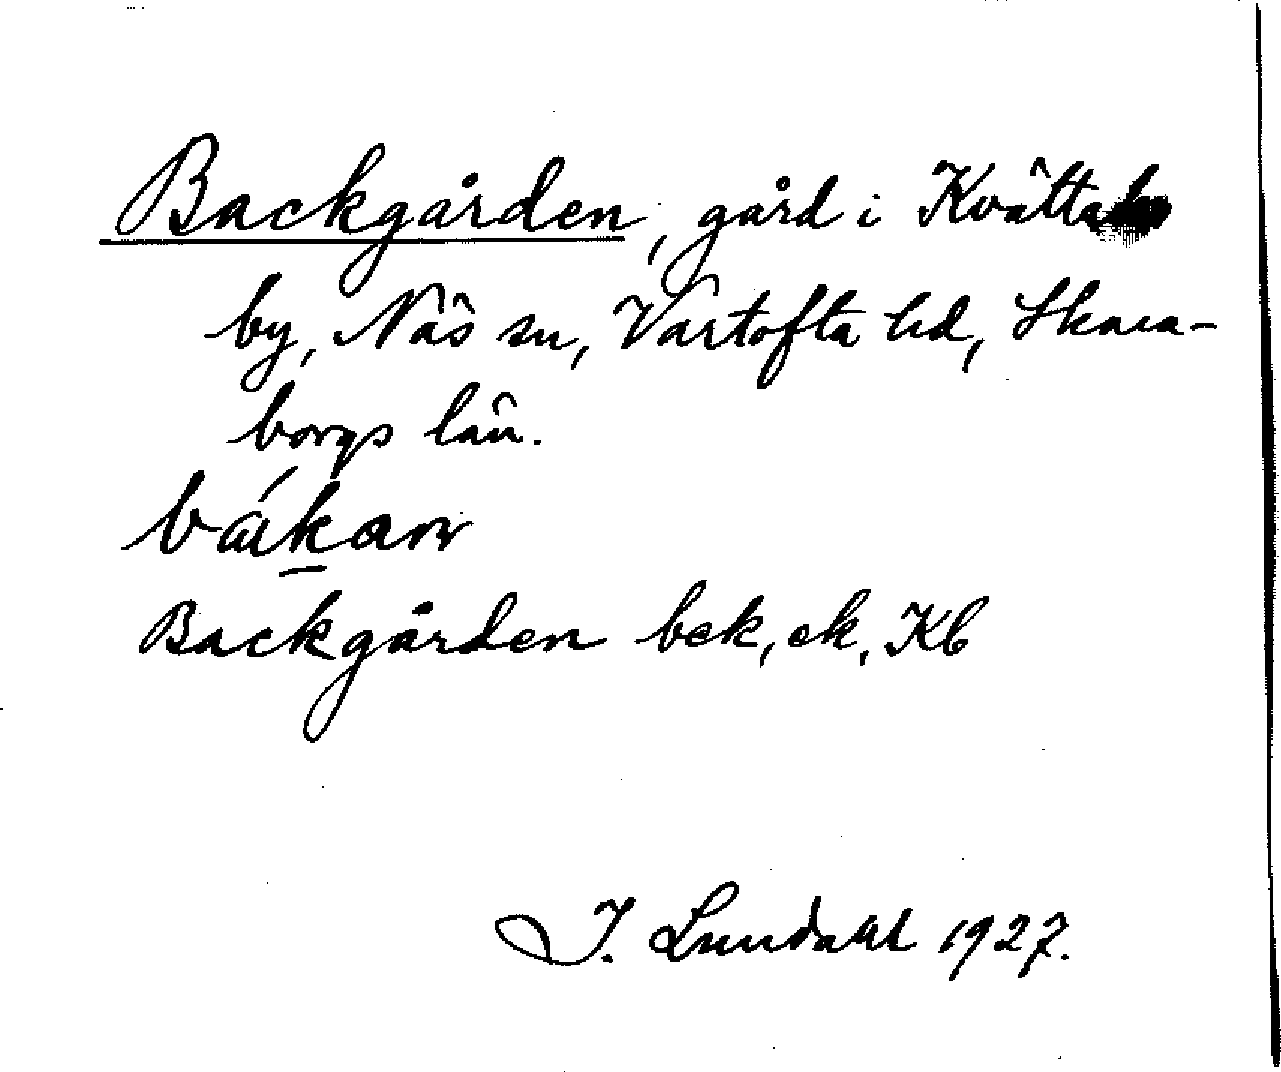 Backgården, gård i Kvätta
by, Näs sn, Vartofta hd, Skara-
borgs län.
Backgården bek, ek, Kb
I. Lundahl 1927.